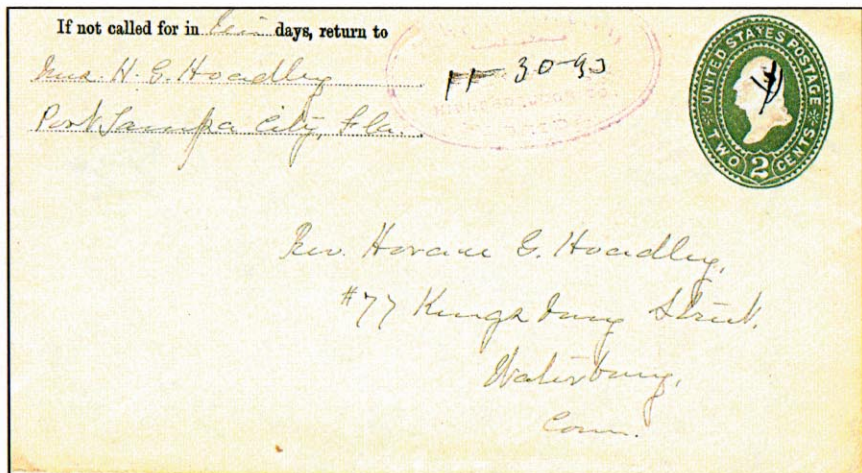 If not called for in ten days, return to
Mrs. H. G. Hoadley
Port Tampa City, Fla.
30-93
HILLSBOROUGH CO.
UNITED STATES POSTAGE
TWO 2 CENTS
Rev. Horace G. Hoadley,
#77 Kingsbury Street.
Waterbury,
Conn.